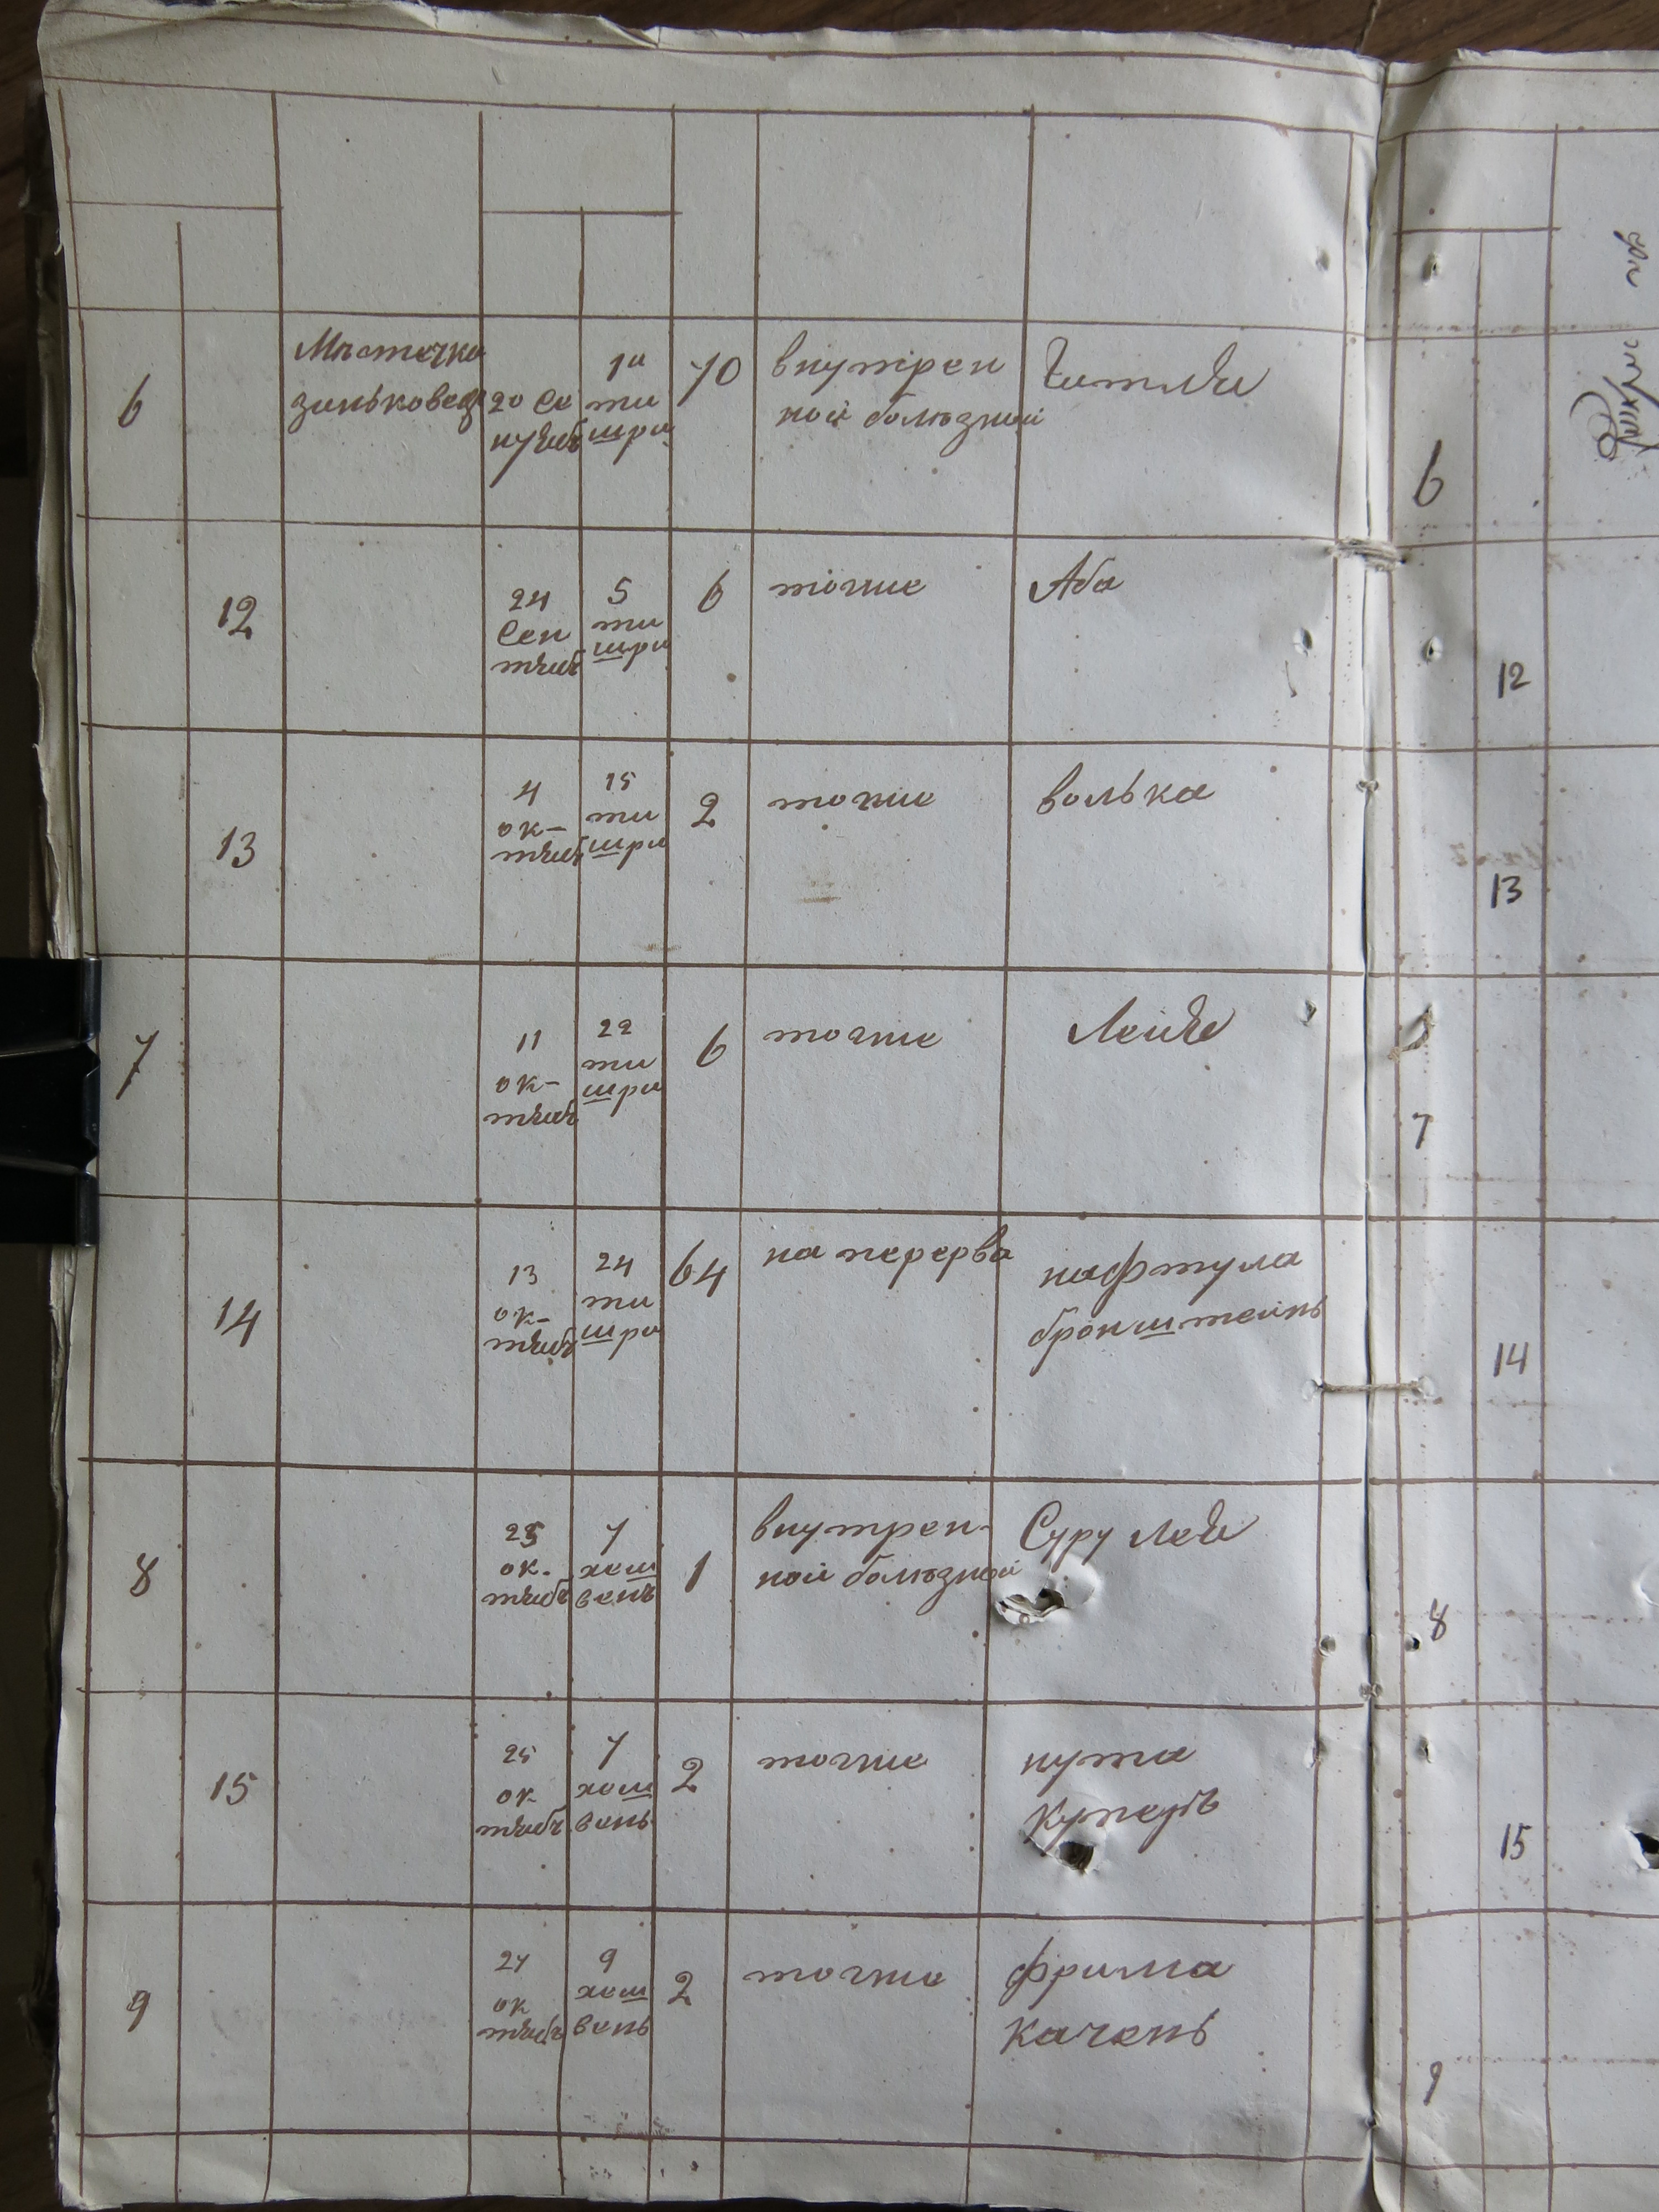 Мястечко
зиньковецъ
6
20 Се
нтяб
1й
ти
шри
70
внутрен
ной болюзний
Гитля
12
24
Сен
тяб
5
ти
шри
6
тогже
Аба
13
4
ок-
тяб
15
ти
шри
2
тогже
волька
7
11
ок-
тяб
22
ти
шри
6
тогже
Лейя
14
13
ок-
тяб
24
ти
шри
64
на перерва
нафтула
бронштейнъ
8
25
ок-
тяб
7
хеш
вень
1
внутрен-
ной болюзний
Суру Лея
15
25
ок
тяб
7
хеш
вень
2
тогже
нута
9
27
ок
тяб
9
хеш
вень
2
тогже
фрима
Качень
6
12
13
7
14
8
15
9